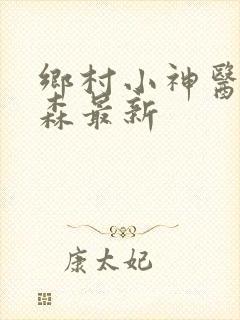 鄉村小神醫
森最新
康太妃